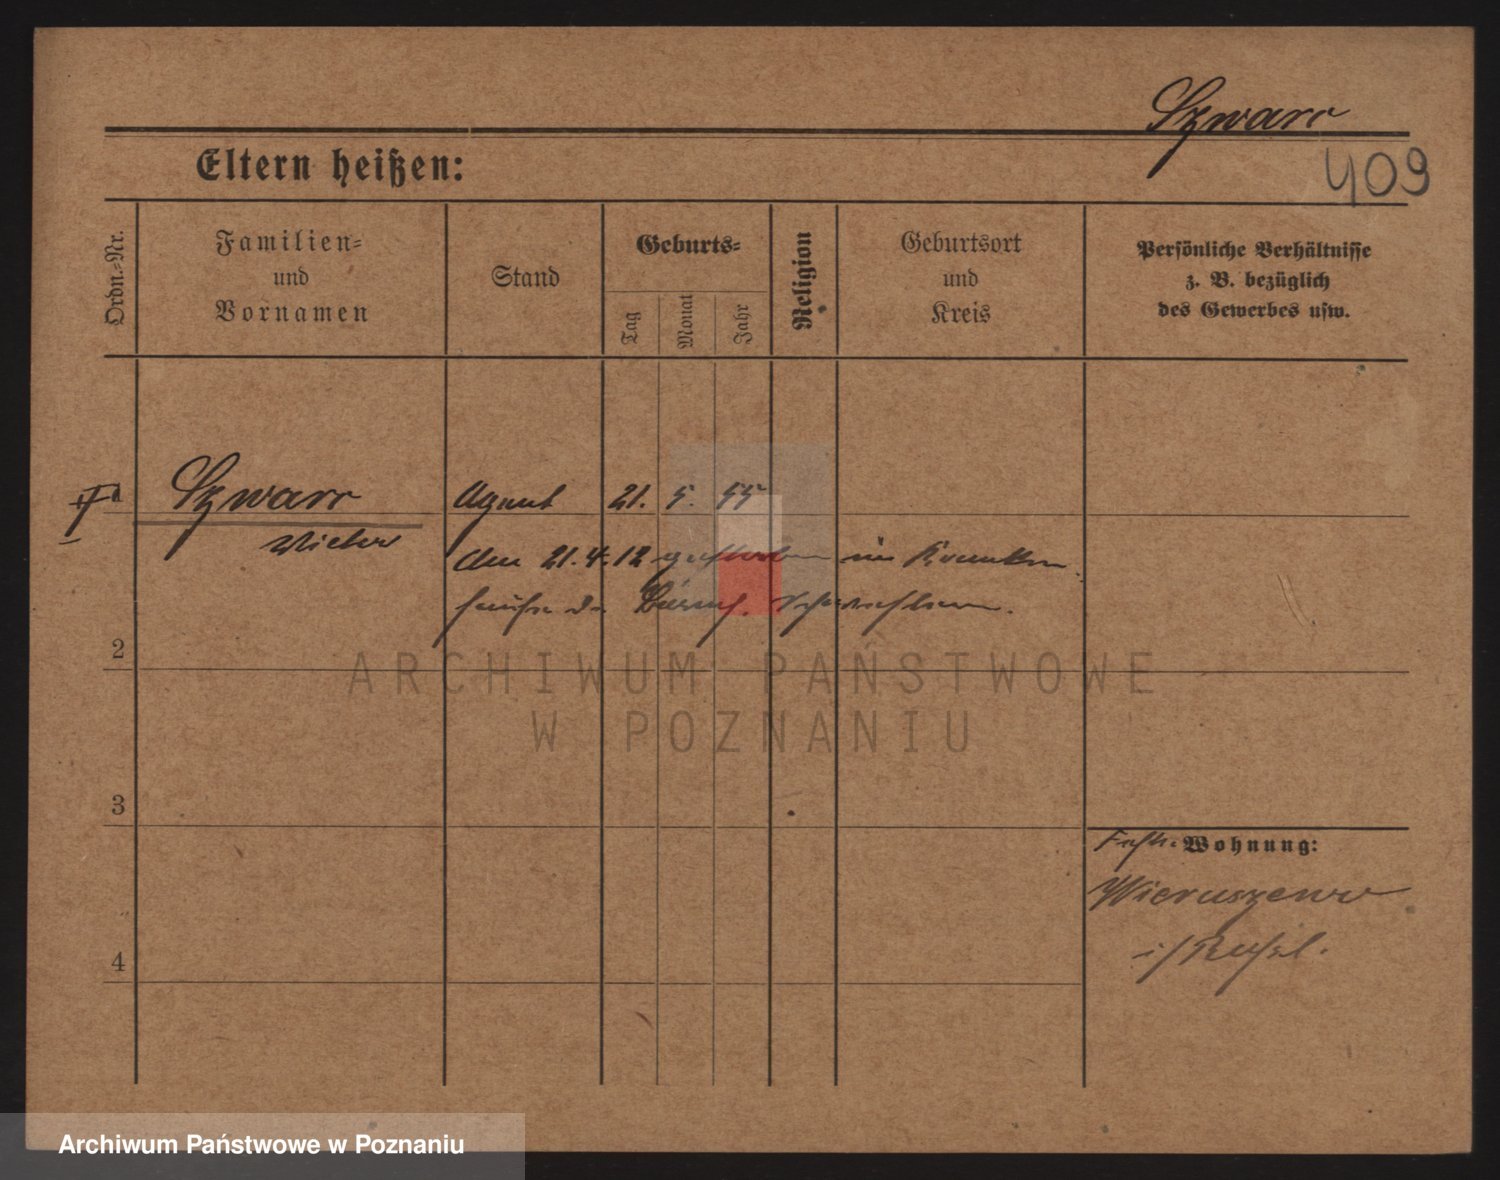 Szwarc
409
Eltern heißen:
Ordn.=Nr.
Familien=
und
Vornamen
Stand
Geburts=
Tag
Monat
Jahr
Religion
Geburtsort
und
Kreis
Persönliche Verhältnisse
z. B. bezüglich
des Gewerbes usw.
Szwarc Agent 21. 5. 55
Victor
am 21.4.12 gestorben im Kranken
hause d. Barmh. Schwestern.
2
ARCHIWUM PAŃSTWOWE
W POZNANIU
3
Wohnung:
Wieruszow
i/
4
Archiwum Państwowe w Poznaniu